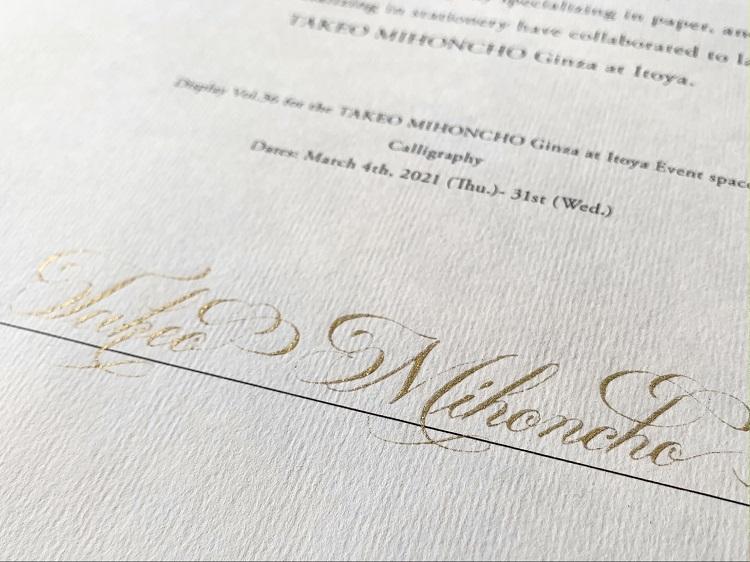 specializing in paper, and
in stationery have collaborated to la
TAKEO MIHONCHO Ginza at Itoya.
Display Vol.36 for the TAKEO MIHONCHO Ginza at Itoya Event space
Calligraphy
Dates: March 4th, 2021 (Thu.)- 31st (Wed.)
Takeo Mihoncho